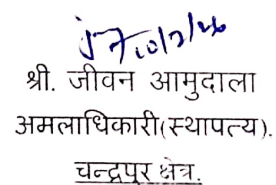 श्री. जीवन आमुदाला
अमलाधिकारी(स्थापत्य).
चन्द्रपूर क्षेत्र.